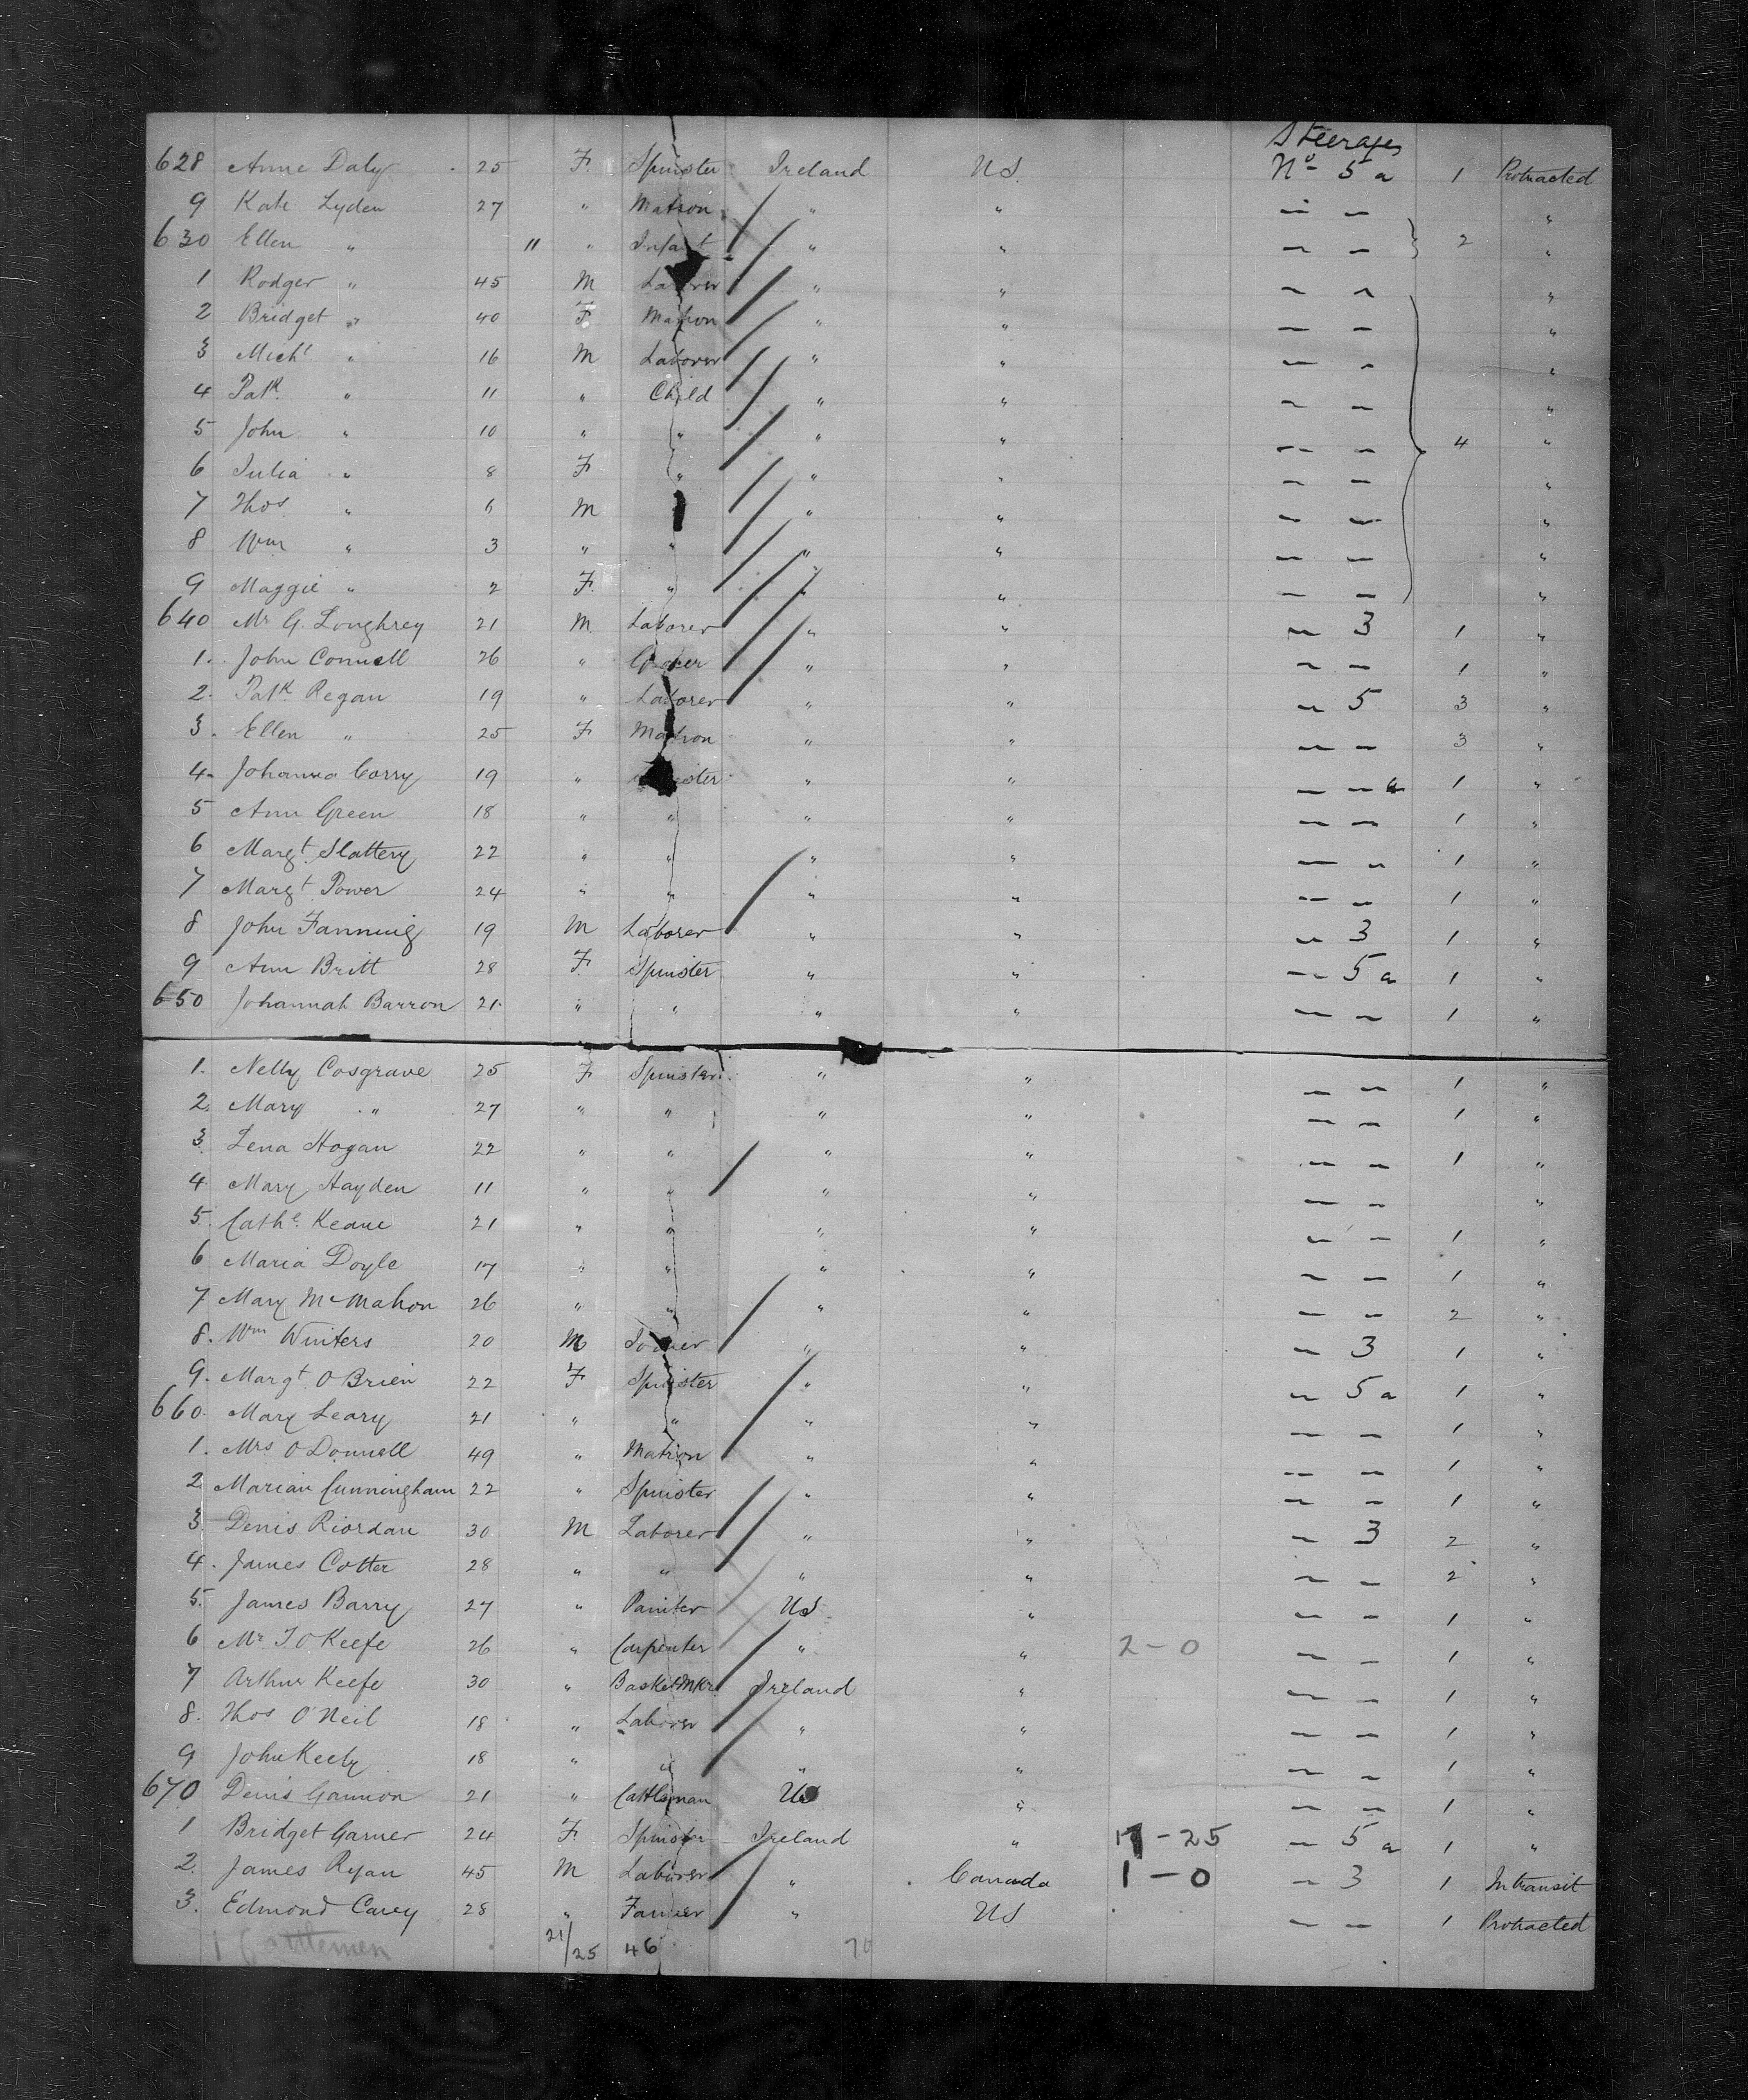 Steerage
628 Anne Daly 25 F. Spinster Ireland US. No 5 a 1 Protracted
9 Kate Lyden 27 " Matron " " — — "
630 Ellen " 11 " Infant " " — — 2 "
1 Rodger " 45 M Laborer " " — — "
2 Bridget " 40 F Matron " " — — "
3 Michl " 16 M Laborer " " — — "
4 Patk. " 11 " Child " " — — "
5 John " 10 " " " " — — 4 "
6 Julia " 8 F " " " — — "
7 Thos " 6 M " " — — "
8 Wm " 3 " " " " — — "
9 Maggie " 2 F. " " " — — "
640 Mr G. Loughrey 21 M. Laborer " " — 3 1 "
1. John Connell 26 " " " — — 1 "
2. Patk Regan 19 " Laborer " " — 5 3 "
3. Ellen " 25 F Matron " " — — 3 "
4. Johanna Corry 19 " Spinster " " — — a 1 "
5 Ann Green 18 " " " " — — 1 "
6 Margt Slattery 22 " " " " — — 1 "
7 Margt Power 24 " " " " — — 1 "
8 John Fanning 19 M Laborer " " — 3 1 "
9 Ann Britt 28 F Spinster " " — 5 a 1 "
650 Johannah Barron 21 " " " " — — 1 "
1. Nelly Cosgrave 25 F Spinster " " — — 1 "
2. Mary " 27 " " " " — — 1 "
3. Lena Hogan 22 " " " " — — 1 "
4. Mary Hayden 11 " " " " — — "
5. Cathe Keane 21 " " " " — — 1 "
6 Maria Doyle 17 " " " " — — 1 "
7 Mary McMahon 26 " " " " — — 2 "
8. Wm Winters 20 M Joiner " " — 3 1 "
9. Margt O Brien 22 F Spinster " " — 5 a 1 "
660. Mary Leary 21 " " " " — — 1 "
1. Mrs O Donnell 49 " Matron " " — — 1 "
2 Marian Cunningham 22 " Spinster " " — — 1 "
3. Denis Riordan 30 M Laborer " " — 3 2 "
4. James Cotter 28 " " " " — — 2 "
5. James Barry 27 " Painter US " — — 1 "
6 Mr J O Keefe 26 " Carpenter " " 2-0 — — 1 "
7 Arthur Keefe 30 " Basket Mkr. Ireland " — — 1 "
8. Thos O'Neil 18 " Laborer " " — — 1 "
9 John Keely 18 " " " " — — 1 "
670 Denis Gannon 21 " Cattleman US " — — 1 "
1 Bridget Garner 24 F Spinster Ireland " -25 — 5 a 1 "
2. James Ryan 45 M Laborer " Canada 1-0 — 3 1 In transit
3. Edmond Carey 28 " Farmer " US — — 1 Protracted
21/25 46